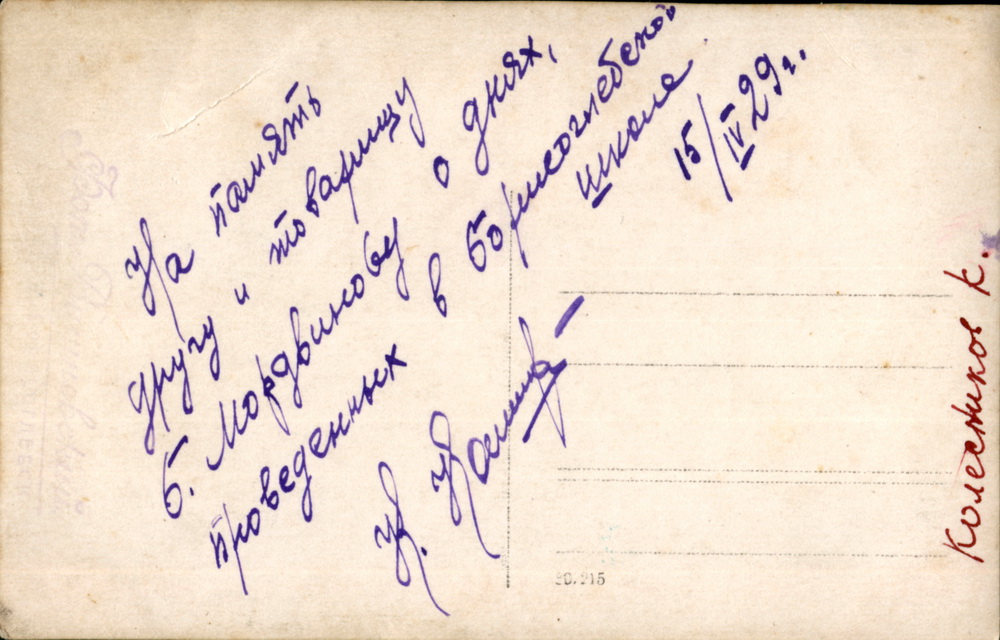 На память
другу и товарищу
Б. Мордвинову о днях,
проведенных в Борисоглебской
школе
15/IV 29 г.
К.
Колесников К.
20.215